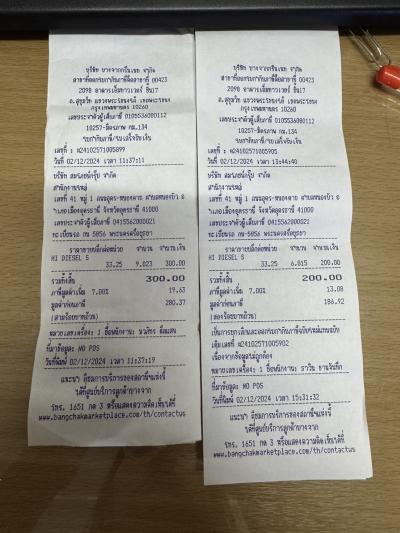 บริษัท บางจากกรีนเนท จำกัด
สาขาที่ออกใบกำกับภาษีคือสาขาที่ 00423
2098 อาคารเอ็มทาวเวอร์ ชั้น17
ถ.สุขุมวิท แขวงพระโขนงใต้ เขตพระโขนง
กรุงเทพมหานคร 10260
เลขประจำตัวผู้เสียภาษี 0105536080112
10257-มิตรภาพ กม.134
ใบกำกับภาษี/ใบเสร็จรับเงิน
เลขที่ : A24102571005899
วันที่ 02/12/2024 เวลา 11:37:11
บริษัท
สำนักงานใหญ่
เลขที่ 41 หมู่ 1 ถนนอุดร-หนองคาย ตำบลหมากแข้ง
อำเภอเมืองอุดรธานี จังหวัดอุดรธานี 41000
เลขประจำตัวผู้เสียภาษี 0415562000021
ทะเบียนรถ กม-5056 พระนครศรีอยุธยา
ราคาขายปลีกต่อหน่วย จำนวน จำนวนเงิน
HI DIESEL S
33.25 9.023 300.00
รวมทั้งสิ้น 300.00
ภาษีมูลค่าเพิ่ม 7.00% 19.63
มูลค่าก่อนภาษี 280.37
(สามร้อยบาทถ้วน)
หมายเลขเครื่อง: 1 ชื่อพนักงาน:
ที่มาข้อมูล: MO POS
วันที่พิมพ์ 02/12/2024 เวลา 11:37:19
แนะนำ ติชมการบริการของสถานีฯแห่งนี้
ได้ที่ศูนย์บริการลูกค้าบางจาก
โทร. 1651 กด 3 หรือแสดงความคิดเห็นได้ที่
www.bangchakmarketplace.com/th/contactus
บริษัท บางจากกรีนเนท จำกัด
สาขาที่ออกใบกำกับภาษีคือสาขาที่ 00423
2098 อาคารเอ็มทาวเวอร์ ชั้น17
ถ.สุขุมวิท แขวงพระโขนงใต้ เขตพระโขนง
กรุงเทพมหานคร 10260
เลขประจำตัวผู้เสียภาษี 0105536080112
10257-มิตรภาพ กม.134
ใบกำกับภาษี/ใบเสร็จรับเงิน
เลขที่ : A24102571005905
วันที่ 02/12/2024 เวลา 13:44:40
บริษัท
สำนักงานใหญ่
เลขที่ 41 หมู่ 1 ถนนอุดร-หนองคาย
อำเภอเมืองอุดรธานี จังหวัดอุดรธานี 41000
เลขประจำตัวผู้เสียภาษี 0415562000021
ทะเบียนรถ กม-5056 พระนครศรีอยุธยา
ราคาขายปลีกต่อหน่วย จำนวน จำนวนเงิน
HI DIESEL S
33.25 6.015 200.00
รวมทั้งสิ้น 200.00
ภาษีมูลค่าเพิ่ม 7.00% 13.08
มูลค่าก่อนภาษี 186.92
(สองร้อยบาทถ้วน)
เป็นการยกเลิกและออกใบกำกับภาษีฉบับใหม่แทนฉบับ
เดิมเลขที่ A24102571005902
เนื่องจากข้อมูลไม่ถูกต้อง
หมายเลขเครื่อง: 1 ชื่อพนักงาน:
ที่มาข้อมูล: MO POS
วันที่พิมพ์ 02/12/2024 เวลา 15:31:32
แนะนำ ติชมการบริการของสถานีฯแห่งนี้
ได้ที่ศูนย์บริการลูกค้าบางจาก
โทร. 1651 กด 3 หรือแสดงความคิดเห็นได้ที่
www.bangchakmarketplace.com/th/contactus